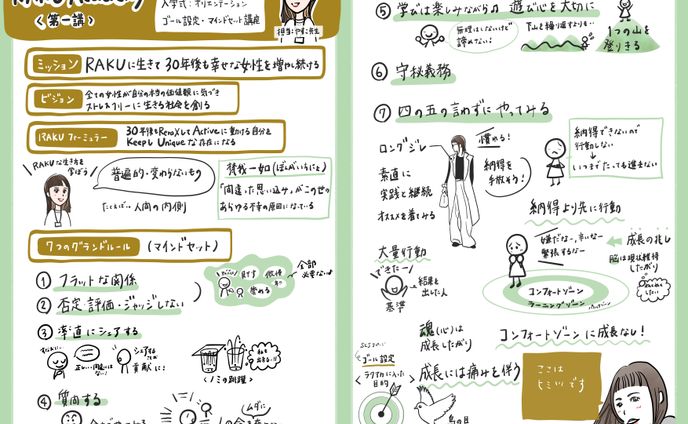 RAKU Academy
＜第一講＞
入学式：オリエンテーション
ゴール設定・マインドセット講座
担当：やまに先生
ミッション
RAKUに生きて30年後も幸せな女性を増やし続ける
ビジョン
全ての女性が自分の本当の価値観に気づき
ストレスフリーに生きる社会を創る
RAKUフォーミュラー
30年後もRelaxしてActiveに動ける自分を
KeepしUniqueな存在になる
RAKUな生き方を
学ぼう
普遍的・変わらないもの
たとえば…人間の内側
梵我一如(ぼんがいちにょ)
「間違った思い込み」がこの世の
あらゆる不幸の原因になっている
7つのグランドルール
(マインドセット)
① フラットな関係
② 否定・評価・ジャッジしない
全部
必要ない
③ 率直にシェアする
シェアする
ことは
貢献に!
＜ノミの跳躍＞
④ 質問する
ムダに
⑤ 学びは楽しみながら♪ 遊び心を大切に
無理はしないけど
諦めない!
下山を繰り返すよりも…
1つの山を
登りきる
⑥ 守秘義務
⑦ 四の五の言わずにやってみる
ロングジレ
慣れる!
素直に
実践と継続
オススメを着てみる
納得を
手放そう!
納得できないので
行動しない
いつまでたっても進まない
納得より先に行動
大量行動
できたー!
結果を
出してる人
基準
嫌だなー、辛いなー
緊張するなー
成長の兆し
脳は現状維持
したがり
コンフォートゾーン
ラーニングゾーン
魂(心)は
成長したがり
コンフォートゾーンに成長なし!
ゴール設定
＜ラクダに入った
目的
成長には痛みを伴う
鳥の目
ここは
ヒミツです